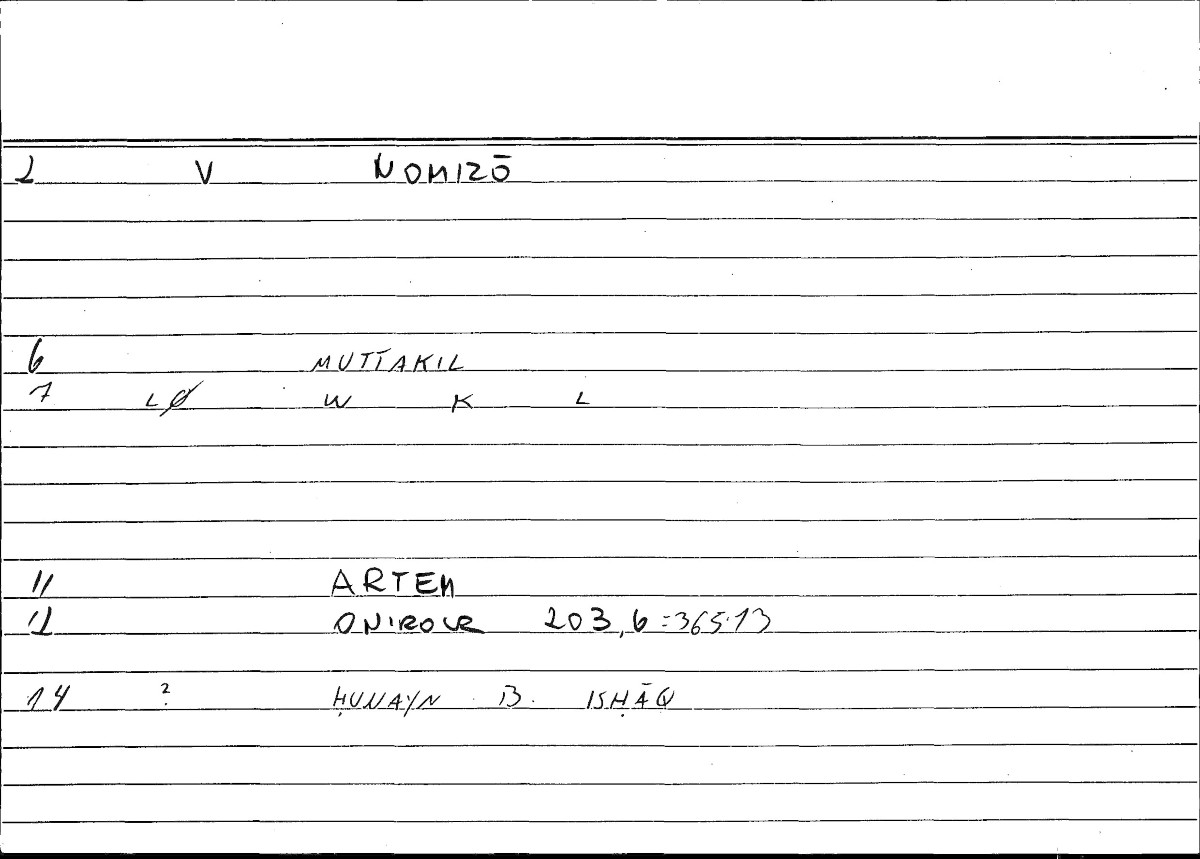 2 V NOMIZŌ
6 MUTTAKIL
7 LØ W K L
11 ARTEM
12 ONIROCR 203,6=365.13
14 ? ḤUNAYN B. ISḤĀQ